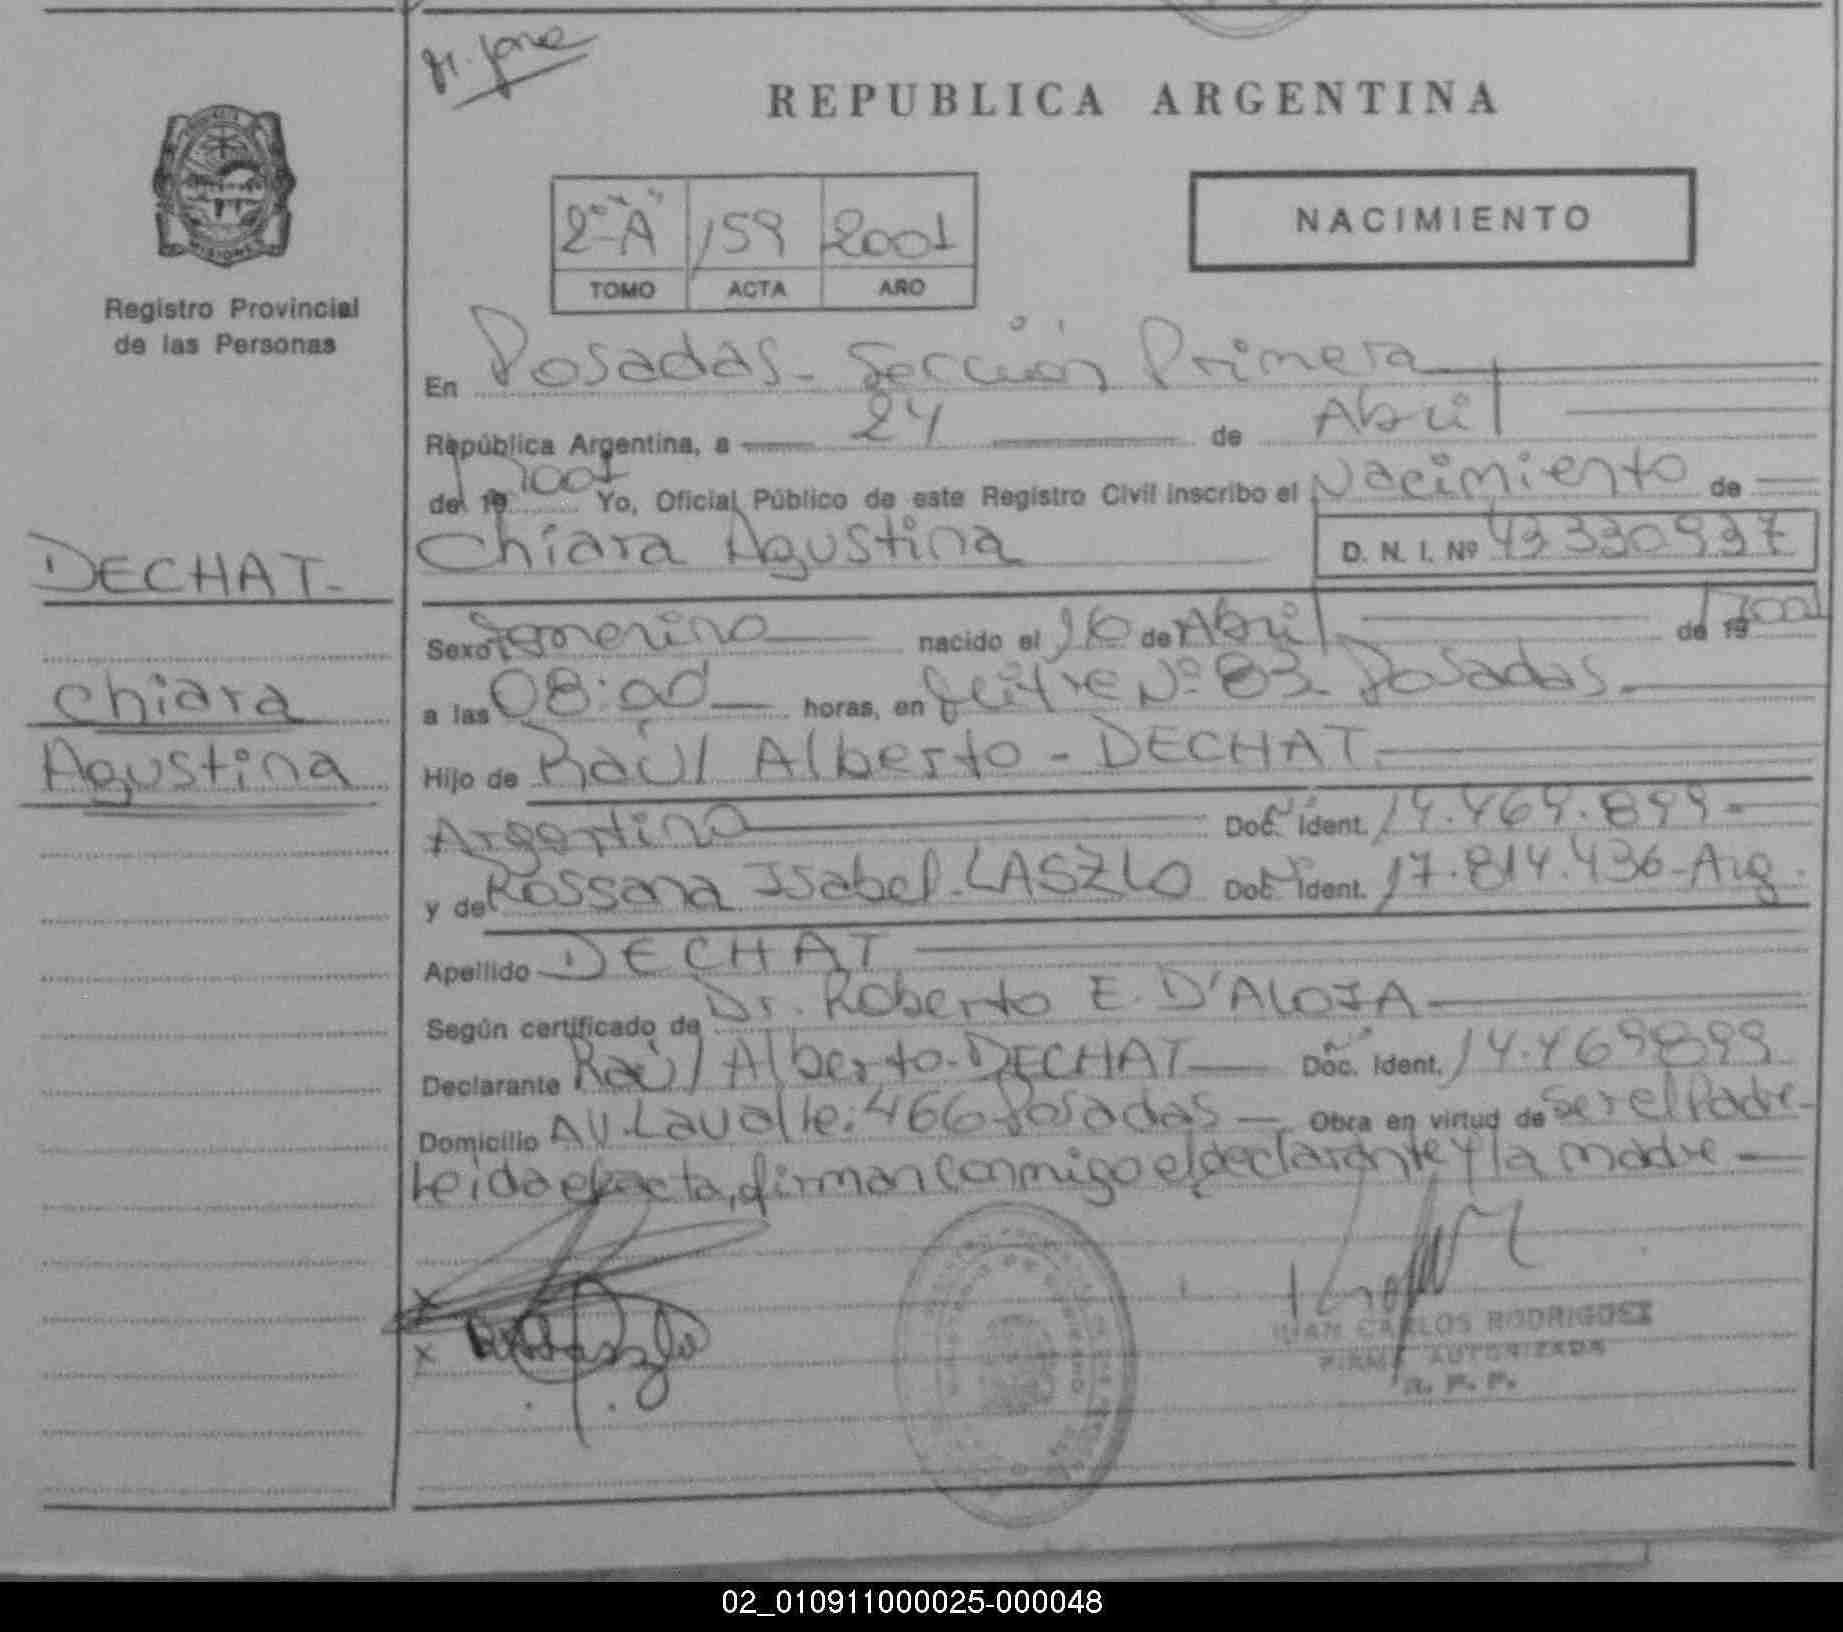 REPUBLICA ARGENTINA
2º "A" 159 2001
TOMO ACTA AÑO
NACIMIENTO
Registro Provincial
de las Personas
En Posadas - Sección Primera
República Argentina, a 24 de Abril
del 2001 Yo, Oficial Público de este Registro Civil inscribo el Nacimiento de
Chiara Agustina D. N. I. Nº 43330937
DECHAT-
Chiara
Agustina
Sexo femenino nacido el 16 de Abril de 2001
a las 08:00 horas, en Nº 83 Posadas.
Hijo de Raúl Alberto - DECHAT.
Argentino Doc. Ident. 14.469.899-
y de Rossana Isabel - LASZLO Doc. Ident. 17.814.436-Arg.
Apellido DECHAT
Según certificado de Dr. Roberto E. D'ALOIA
Declarante Raúl Alberto - DECHAT Doc. Ident. 14.469899
Domicilio AV. Lavalle: 466 Posadas - Obra en virtud de Ser el Padre-
Leida el acta, firman conmigo el declarante y la madre
x
x
JUAN CARLOS RODRIGUEZ
FIRMA AUTORIZADA
R. P. P.
02_010911000025-000048